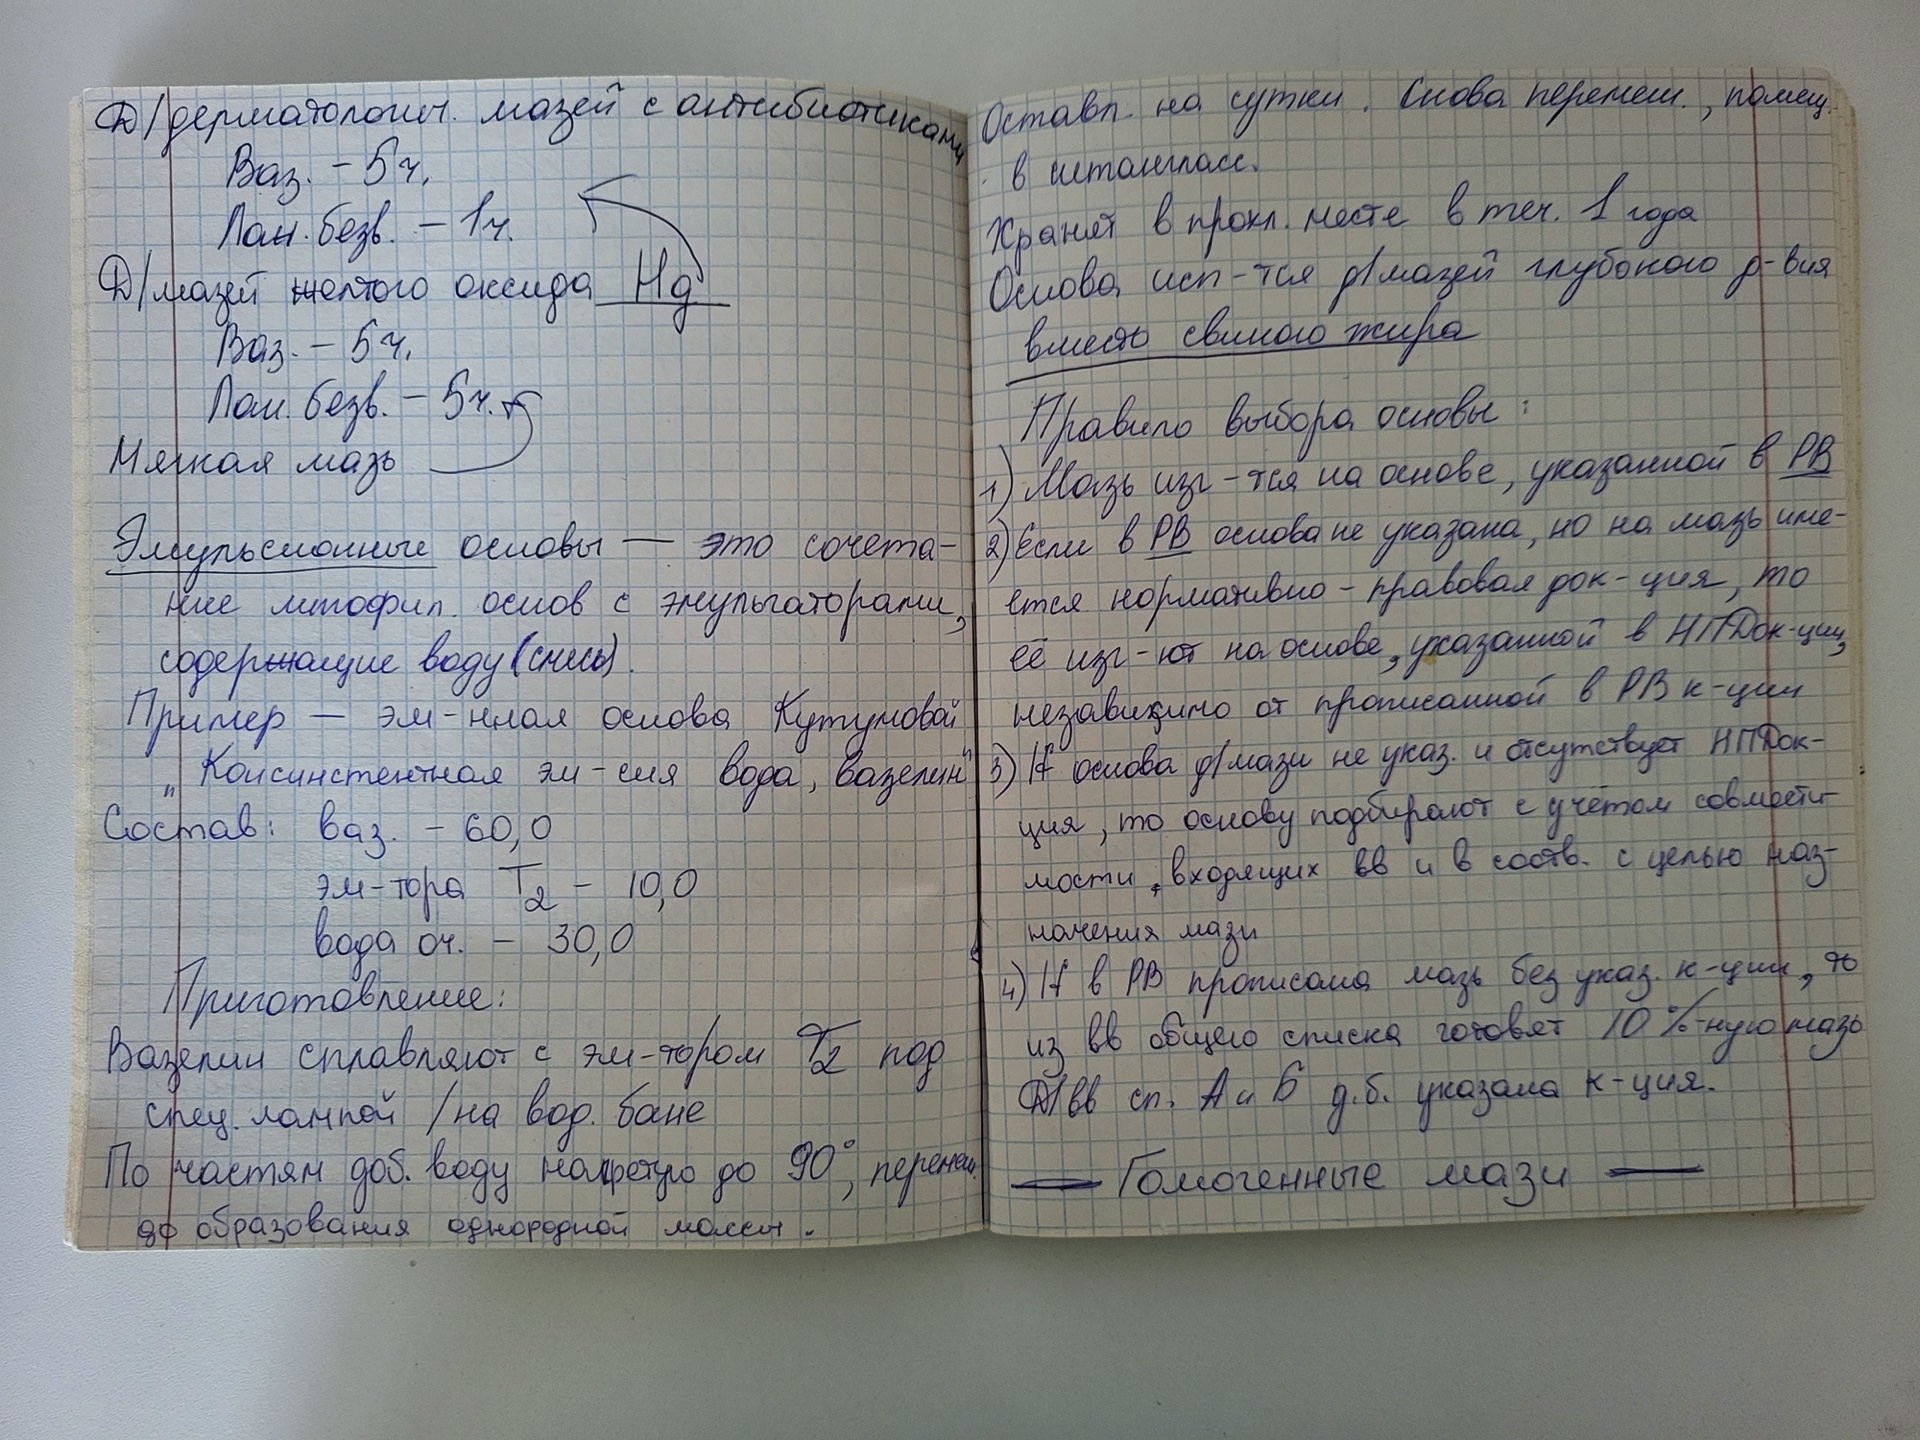 Д/дерматологич. мазей с антибиотиками
Ваз. – 5ч.
Лан. безв. – 1ч.
Д/мазей желтого оксида Hg
Ваз. – 5ч.
Лан. безв. – 5ч.
Мягкая мазь
Эмульсионные основы — это сочета-
ние липофил. основ с эмульгаторами,
содержащие воду (смесь).
Пример — эм-нная основа Кутумовой
„Консинстентная эм-сия вода, вазелин"
Состав: ваз. – 60,0
эм-тора Т2 – 10,0
вода оч. – 30,0
Приготовление:
Вазелин сплавляют с эм-тором Т2 под
спец. лампой / на вод. бане
По частям доб. воду нагретую до 90°, перемеш.
до образования однородной массы.
Оставл. на сутки. Снова перемеш., помещ.
в штангласс.
Хранят в прохл. месте в теч. 1 года
Основа исп-тся д/мазей глубокого д-вия
вместо свиного жира
Правило выбора основы:
1) Мазь изг-тся на основе, указанной в РВ
2) Если в РВ основа не указана, но на мазь име-
ется нормативно-правовая док-ция, то
её изг-ют на основе, указанной в НПДок-ции,
независимо от прописанной в РВ к-ции
3) If основа д/мази не указ. и отсутствует НПДок-
ция, то основу подбирают с учётом совмести-
мости, входящих вв и в соотв. с целью наз-
начения мази
4) If в РВ прописана мазь без указ. к-ции, то
из вв общего списка готовят 10%-ную мазь
Д/вв сп. А и Б д.б. указана к-ция.
— Гомогенные мази —